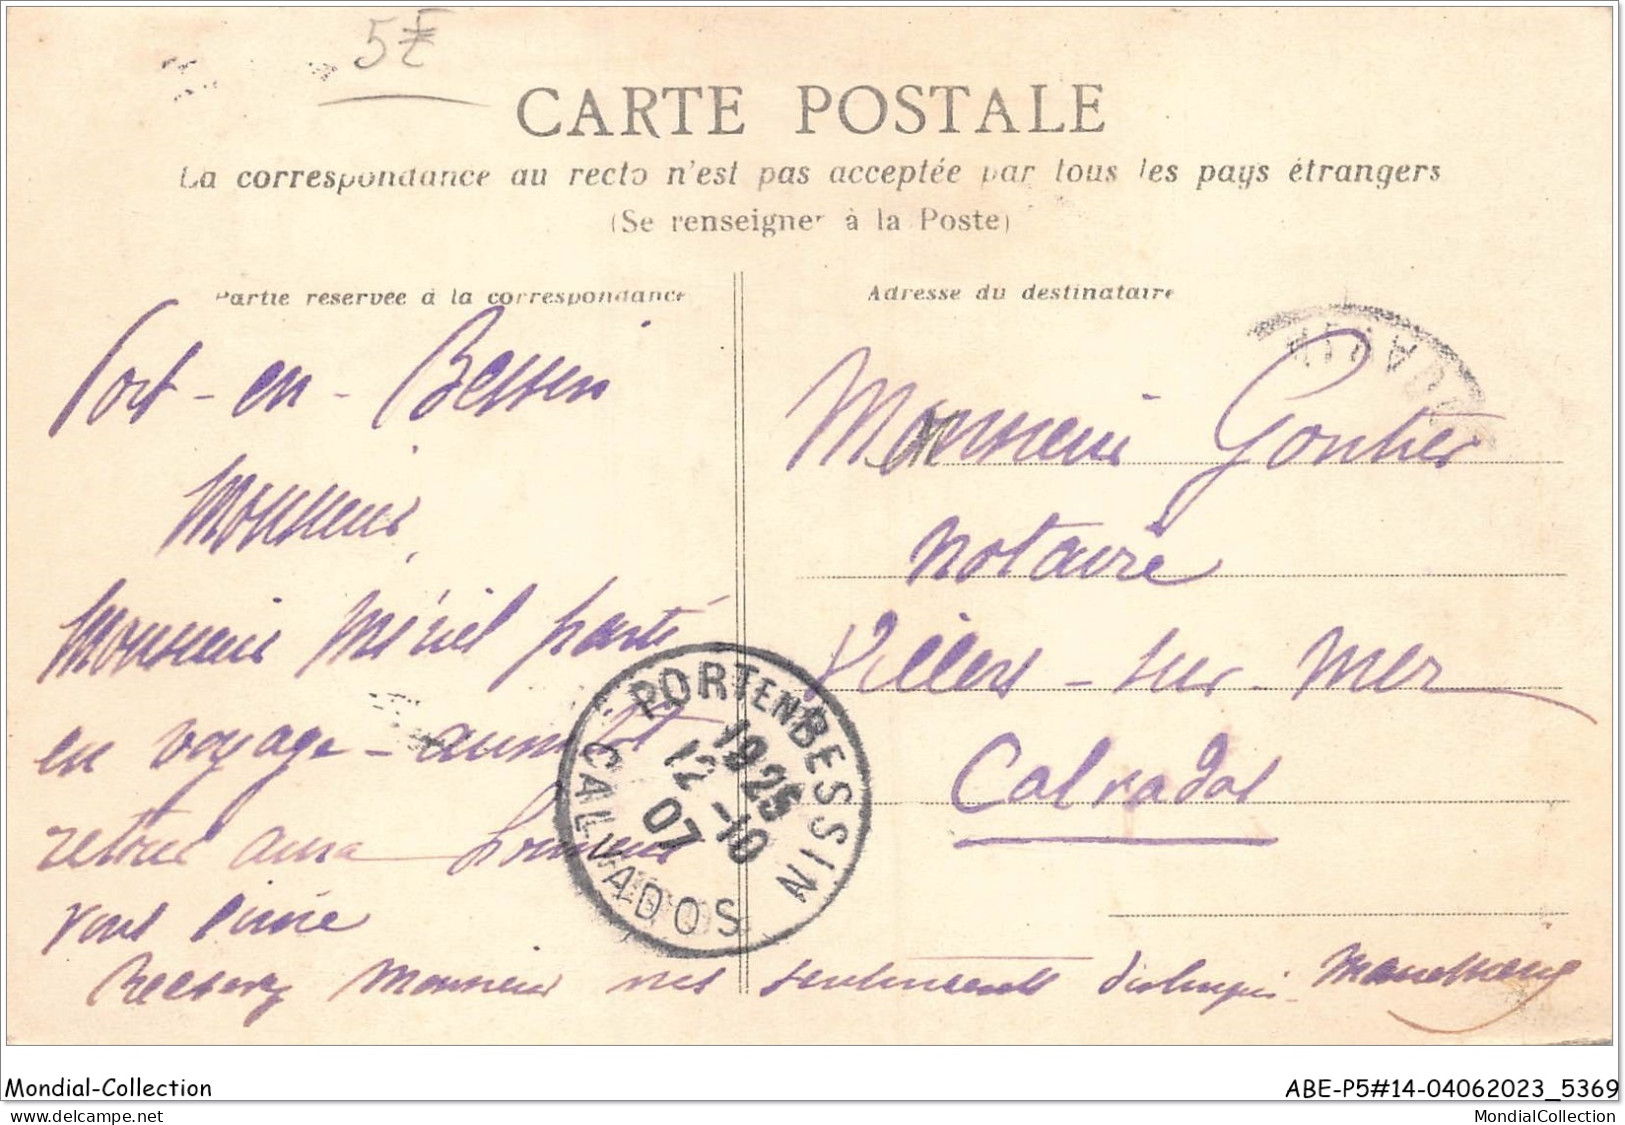 5F
CARTE POSTALE
La correspondance au recto n'est pas acceptée par tous les pays étrangers
(Se renseigner à la Poste)
Partie réservée à la correspondance
Adresse du destinataire
Port-en-Bessin
Monsieur,
Monsieur Mériel parti
en voyage - aussitôt
retour aura l'honneur
vous écrire
Recevez Monsieur mes sentiments distingués
Monsieur Gontier
notaire
Villers-sur-Mer
Calvados
PORT EN BESSIN
19 25
12 -10
07
CALVADOS
Mondial-Collection
ABE-P5#14-04062023_5369
www.delcampe.net
MondialCollection